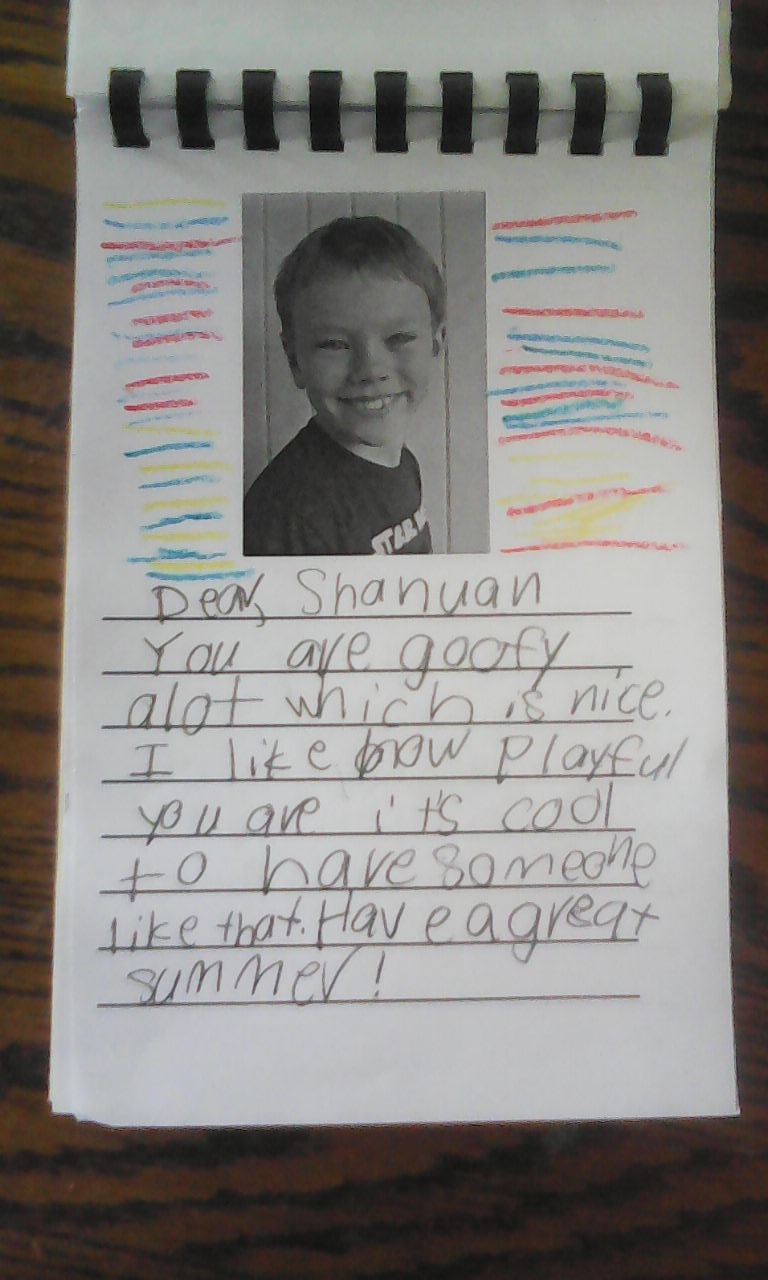 STAR W
Dear, Shanuan
You are goofy
alot which is nice.
I like how playful
you are it's cool
to have someone
like that. Have a great
summer!